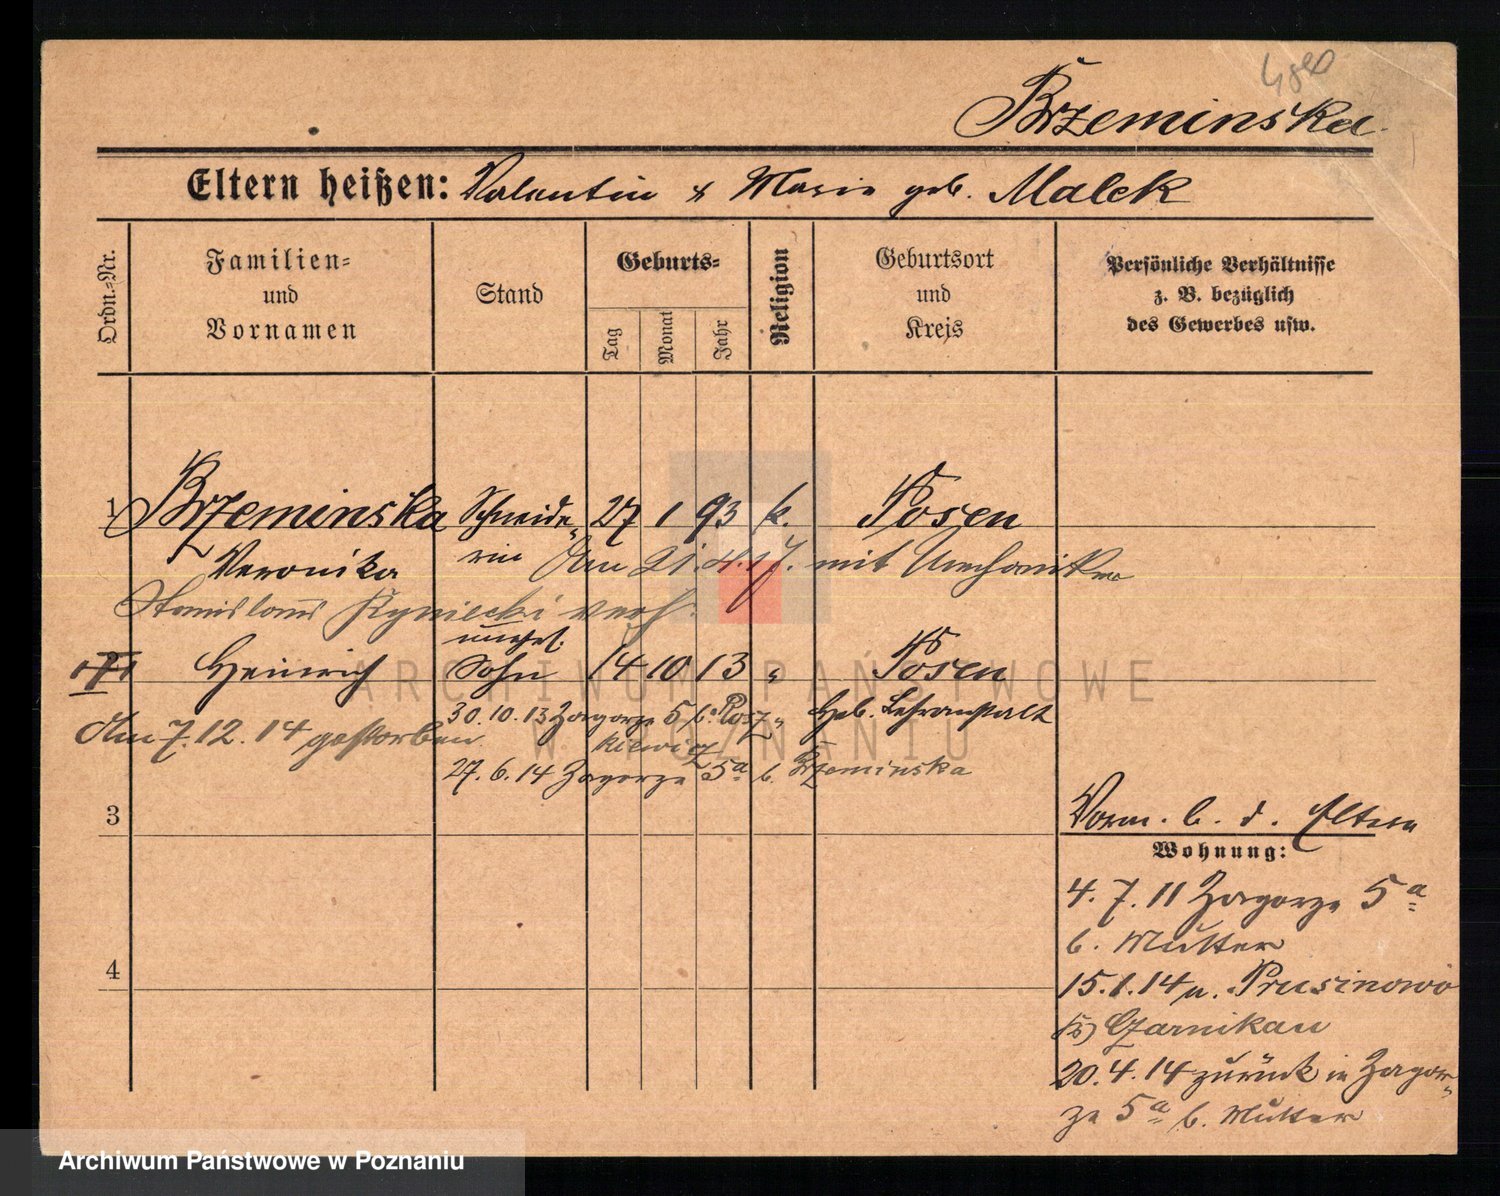 4800
Brzeminska
Eltern heißen: Valentin & Marie geb. Malek
Ordn.-Nr.
Familien-
und
Vornamen
Stand
Geburts-
Tag
Monat
Jahr
Religion
Geburtsort
und
Kreis
Persönliche Verhältnisse
z. B. bezüglich
des Gewerbes usw.
1 Brzeminska Schneide- 27 1 93 k. Posen
Veronika rin Am 21.4.17. mit Mechaniker
Stanislaus verh.
unehel.
Heinrich Sohn 14 10 13 " Posen
30.10.13 Zagorze 5 b. Rosz- Heb. Lehranstalt
Am 7.12.14 gestorben. kiewicz
27.6.14 Zagorze 5a b. Brzeminska
3
Vorm. b. d. Eltern
Wohnung:
4.7.11 Zagorze 5a
b. Mutter
4
15.1.14 n. Prusinowo
Czarnikau
20.4.14 zurück in Zagor-
ze 5a b. Mutter
ARCHIWUM PAŃSTWOWE
W POZNANIU
Archiwum Państwowe w Poznaniu